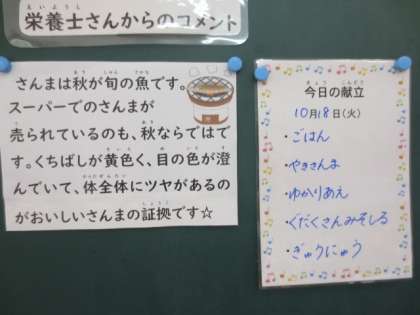 栄養士さんからのコメント
さんまは秋が旬の魚です。
スーパーでのさんまが
売られているのも、秋ならではで
す。くちばしが黄色く、目の色が澄
んでいて、体全体にツヤがあるの
がおいしいさんまの証拠です☆
今日の献立
10月18日(火)
・ごはん
・やきさんま
・ゆかりあえ
・ぐだくさんみそしる
・ぎゅうにゅう